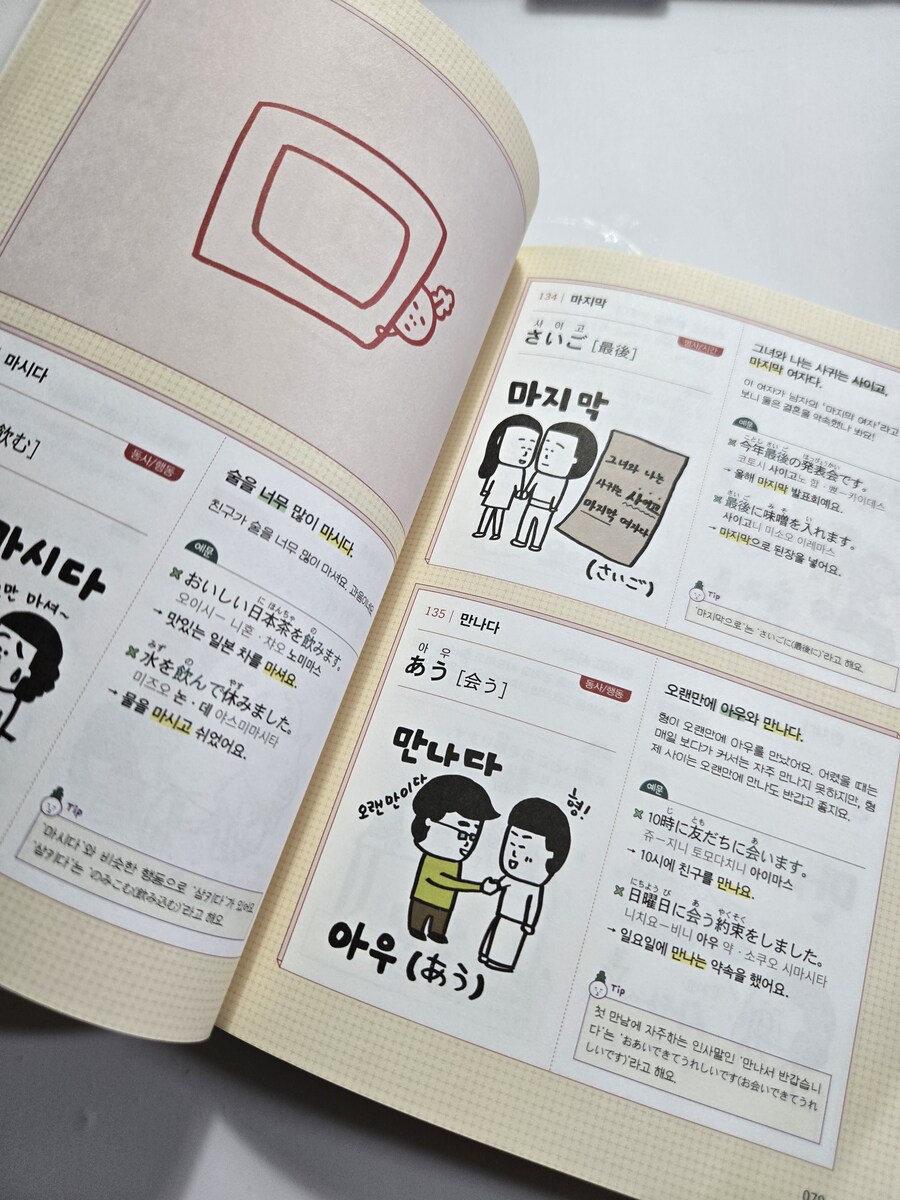 마시다
飲む]
동사/행동
마시다
마셔~
술을 너무 많이 마시다.
친구가 술을 너무 많이 마셔요. 과음이네요.
예문
に ほんちゃ の
おいしい日本茶を飲みます。
오이시ー 니혼・챠오 노미마스
→ 맛있는 일본 차를 마셔요.
みず の やす
水を飲んで休みました。
미즈오 논・데 야스미마시타
→ 물을 마시고 쉬었어요.
Tip
'마시다'와 비슷한 행동으로 '삼키다'가 있어요.
'삼키다'는 'のみこむ(飲み込む)'라고 해요.
134 | 마지막
사 이 고
さいご [最後]
명사/시간
마지막
그녀와 나는
사귀는 사이고
마지막 여자다
(さいご)
그녀와 나는 사귀는 사이고,
마지막 여자다.
이 여자가 남자의 '마지막 여자'라고
보니 둘은 결혼을 약속했나 봐요!
예문
ことし さい ご はっぴょうかい
今年最後の発表会です。
코토시 사이고노 합・뾰ー카이데스
→ 올해 마지막 발표회예요.
さい ご み そ い
最後に味噌を入れます。
사이고니 미소오 이레마스
→ 마지막으로 된장을 넣어요.
Tip
'마지막으로'는 'さいごに(最後に)'라고 해요.
135 | 만나다
아 우
あう [会う]
동사/행동
만나다
오랜만이다
형!
아우 (あう)
오랜만에 아우와 만나다.
형이 오랜만에 아우를 만났어요. 어렸을 때는
매일 보다가 커서는 자주 만나지 못하지만, 형
제 사이는 오랜만에 만나도 반갑고 좋지요.
예문
じ とも あ
10時に友だちに会います。
쥬ー지니 토모다치니 아이마스
→ 10시에 친구를 만나요.
にちよう び あ やくそく
日曜日に会う約束をしました。
니치요ー비니 아우 약・소쿠오 시마시타
→ 일요일에 만나는 약속을 했어요.
Tip
첫 만남에 자주하는 인사말인 '만나서 반갑습니
다'는 'おあいできてうれしいです(お会いできてうれ
しいです)'라고 해요.
079